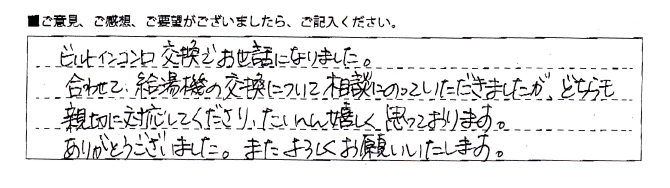 ■ご意見、ご感想、ご要望がございましたら、ご記入ください。
ビルトインコンロ交換でお世話になりました。
合わせて、給湯機の交換について相談にのっていただきましたが、どちらも
親切に対応してくださり、たいへん嬉しく思っております。
ありがとうございました。またよろしくお願いいたします。